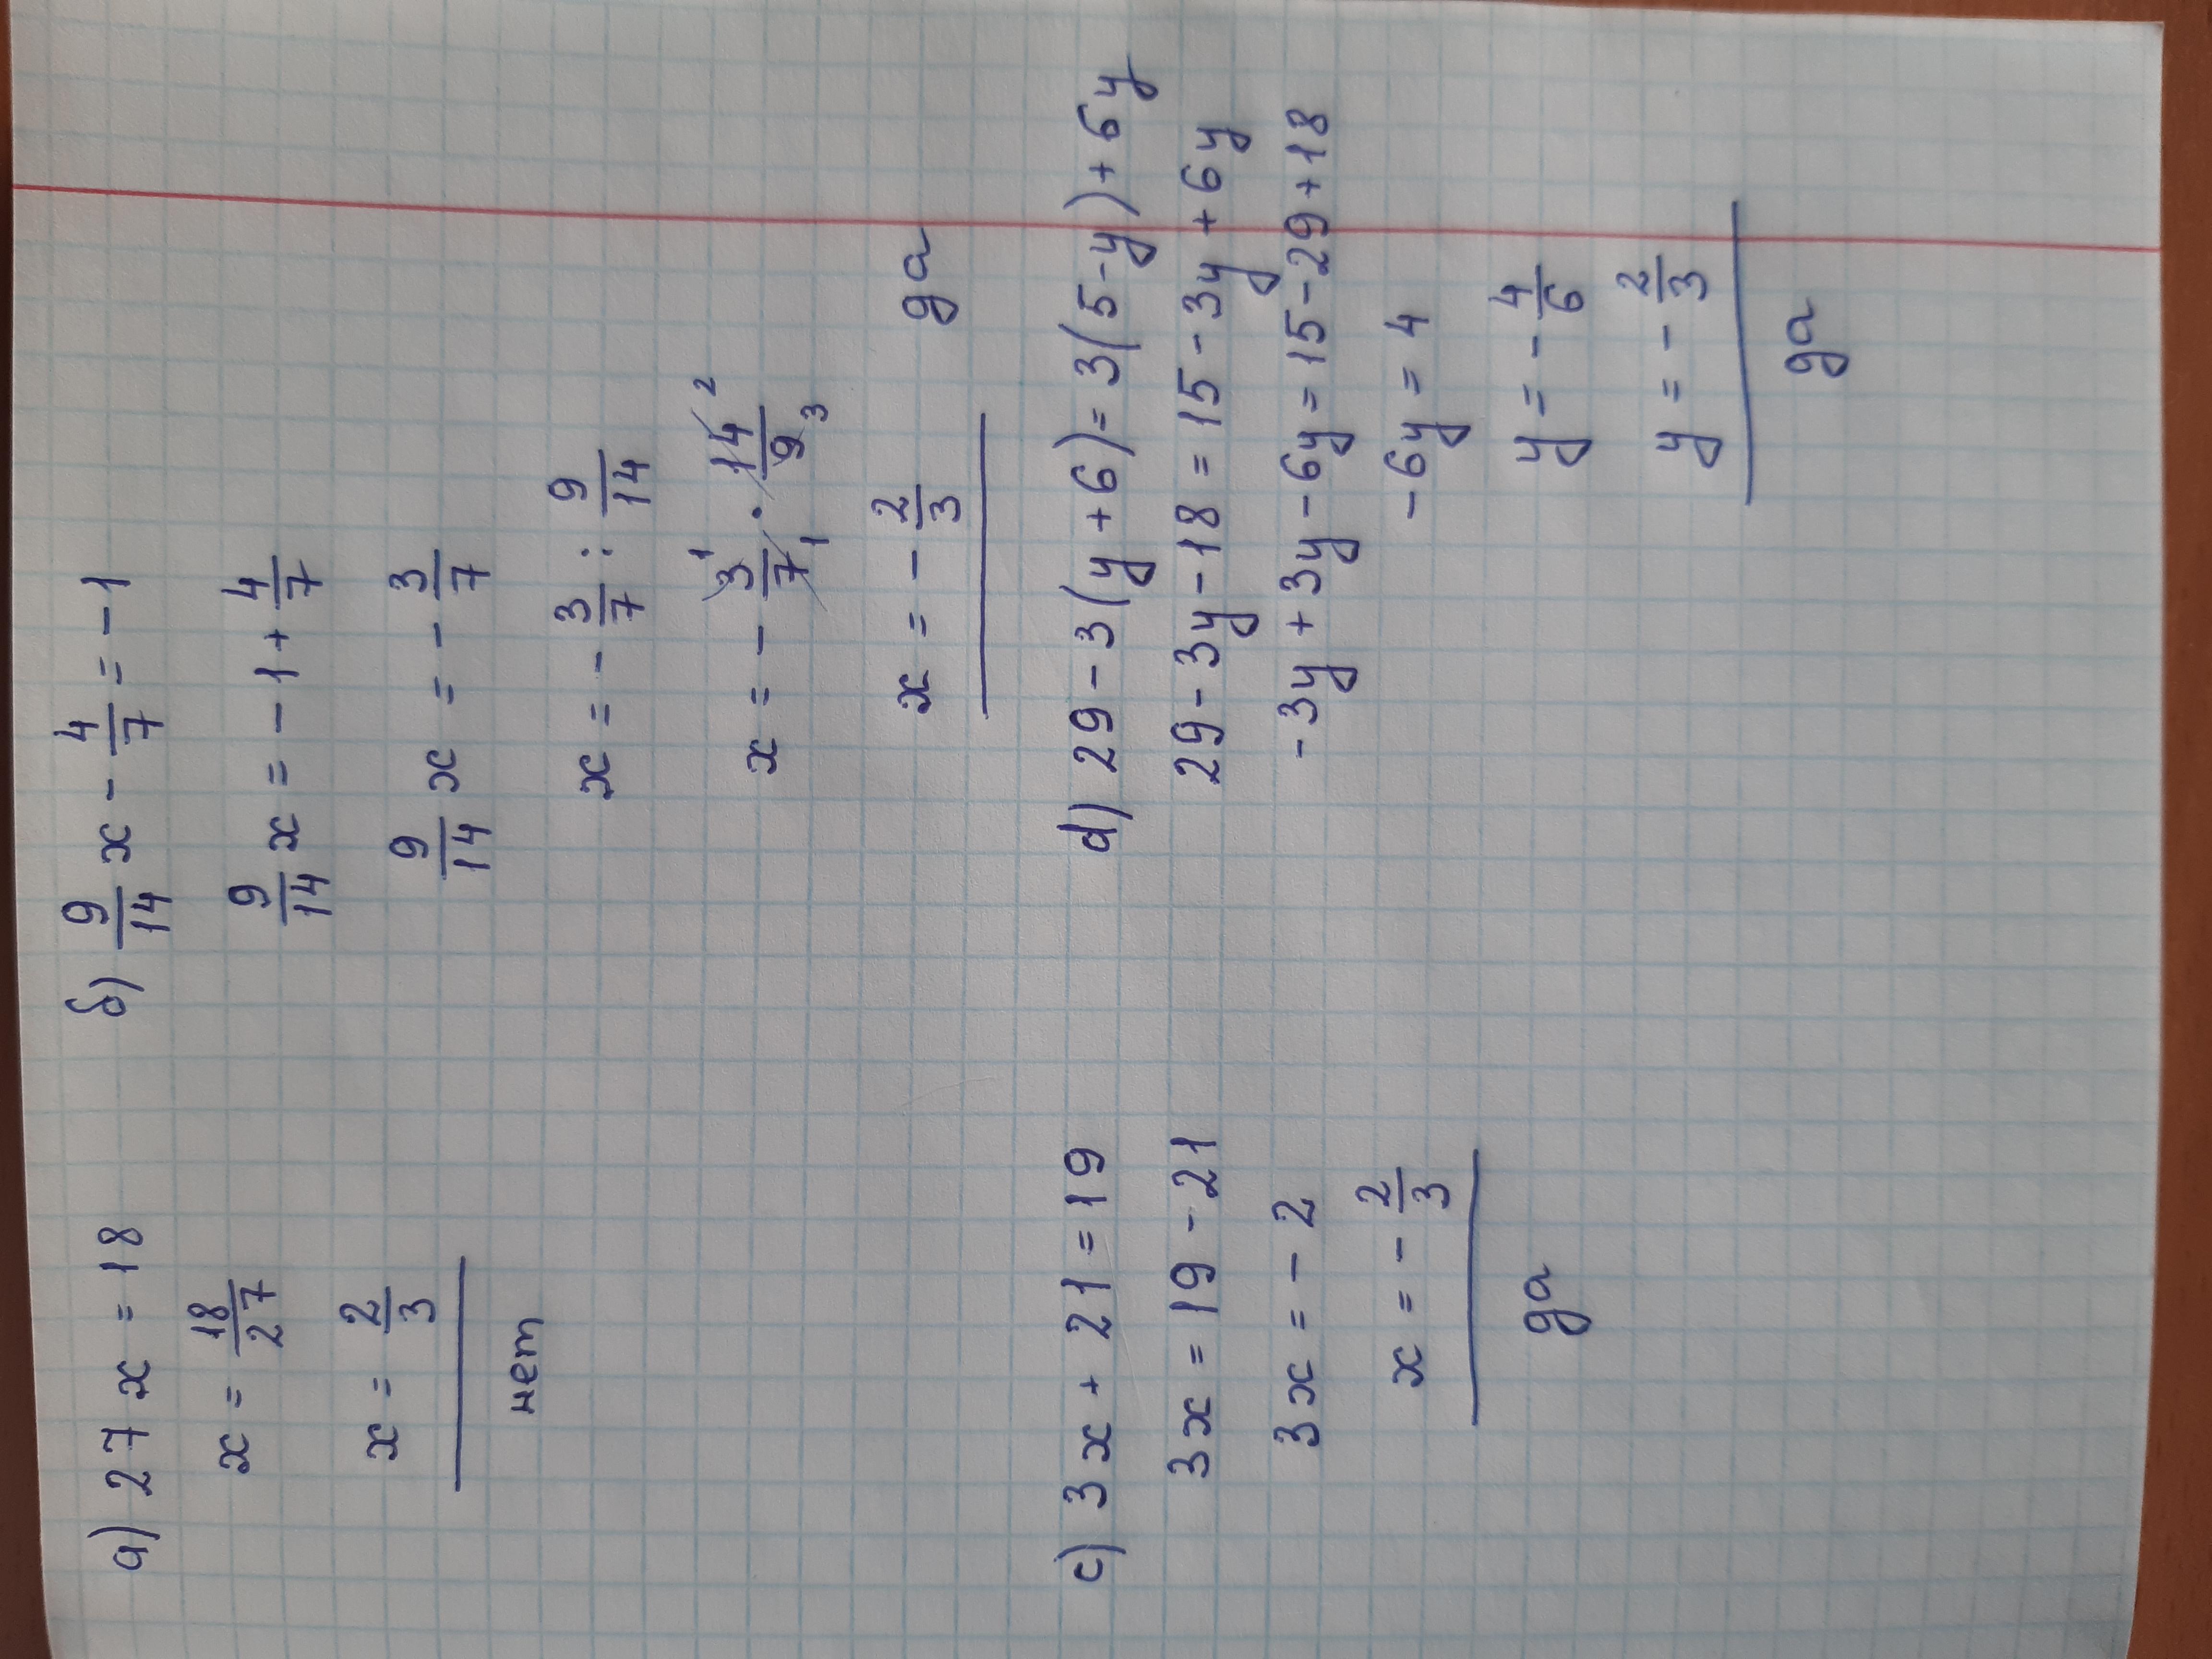 а) 27x = 18
x = 18/27
x = 2/3
нет
б) 9/14 x - 4/7 = -1
9/14 x = -1 + 4/7
9/14 x = -3/7
x = -3/7 : 9/14
x = -3/7 · 14/9 1 1 2 3
x = -2/3
да
c) 3x + 21 = 19
3x = 19 - 21
3x = -2
x = -2/3
да
d) 29 - 3(y + 6) = 3(5 - y) + 6y
29 - 3y - 18 = 15 - 3y + 6y
-3y + 3y - 6y = 15 - 29 + 18
-6y = 4
y = -4/6
y = -2/3
да